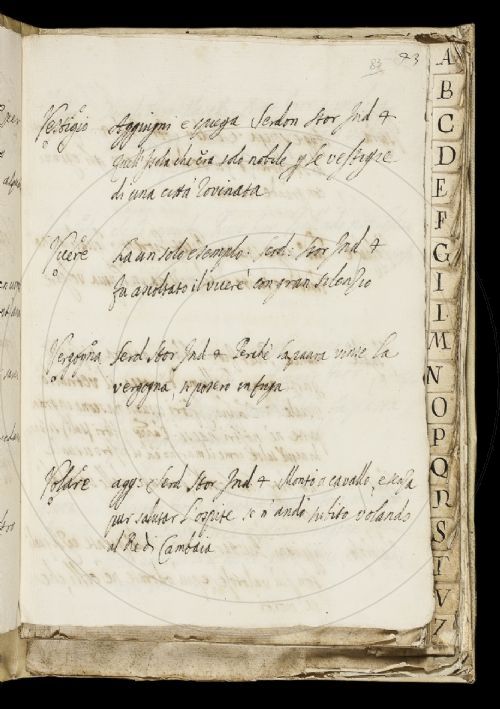 83 93
Vestigio Aggiugni e spiega Serdon Stor Ind 4
Quest Isola ch'era solo nobile p le vestigie
di una città rovinata
Vicere ha un solo esempio: Serd: Stor Ind 4
fu ascoltato il viceré con gran silenzio
Vergogna Serd Stor Ind 4 Perchè la paura vinse la
vergogna, si posero in fuga
Volare agg: e Serd Stor Ind 4 Montò a cavallo, e
pur salutar l'ospite se n'andò subito volando
al Re di Cambaia
A
B
C
D
E
F
G
I
L
M
N
O
P
Q
R
S
T
V
Z